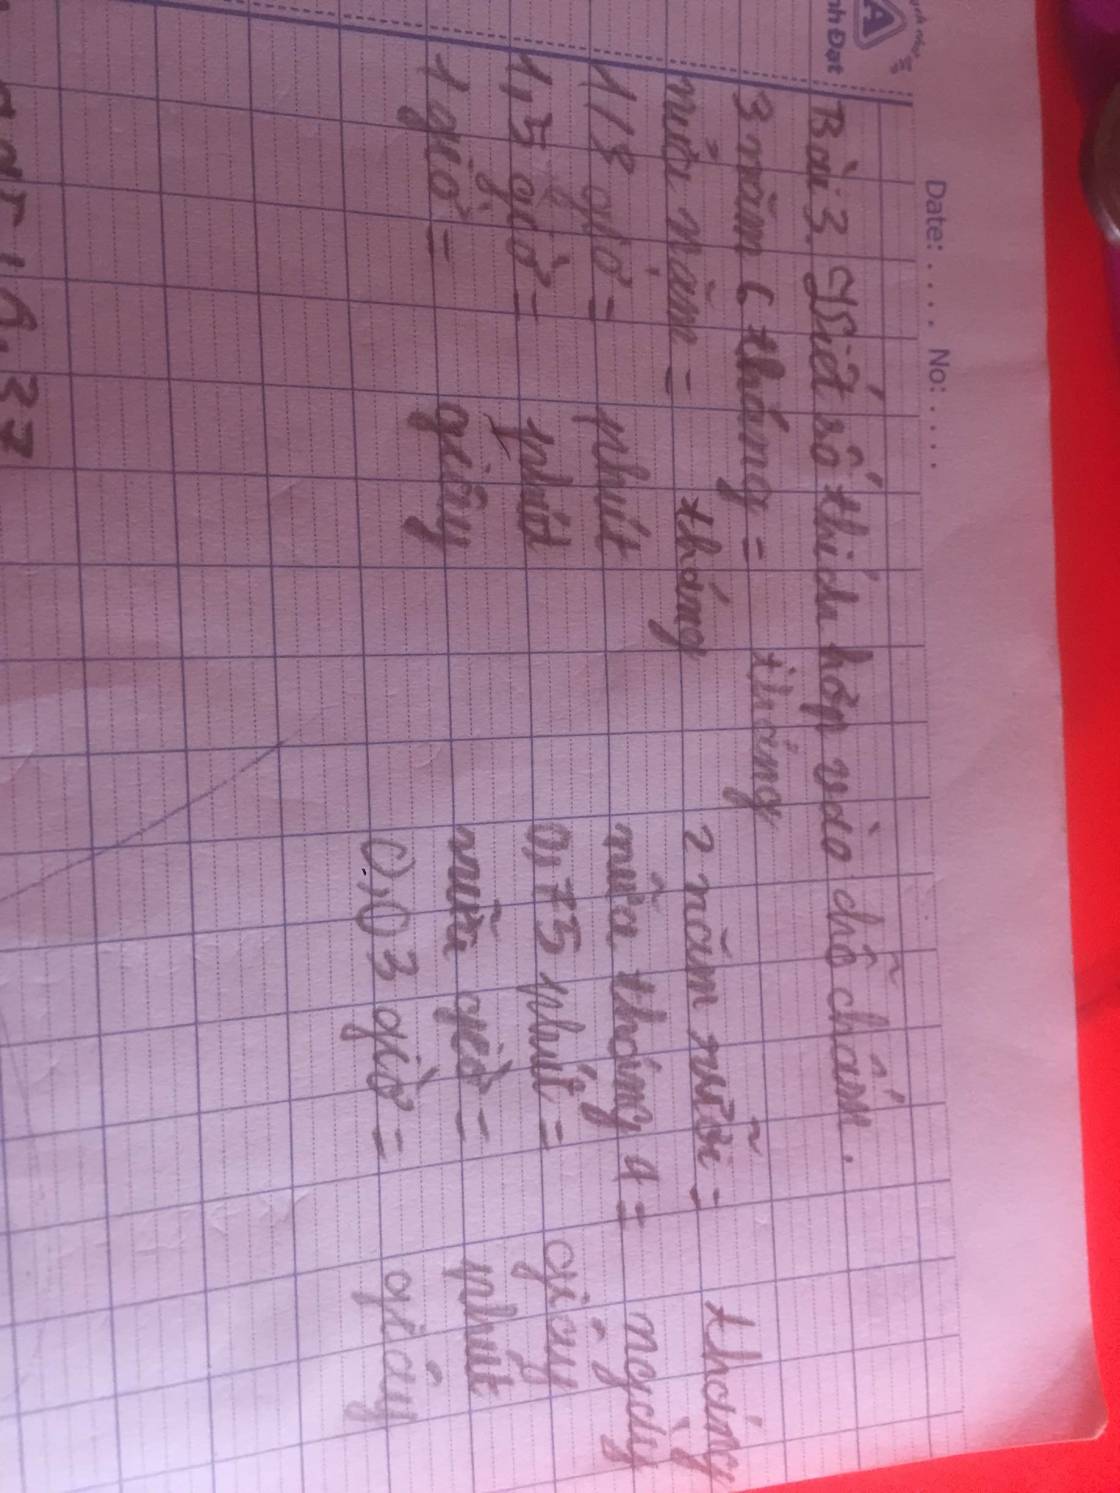 Date: ..... No: .....
nh Đạt
Bài 3. Viết số thích hợp vào chỗ chấm.
3 năm 6 tháng = tháng
2 năm rưỡi = tháng
nửa năm = tháng
nửa tháng 4 = ngày
1/3 giờ = phút
0,75 phút = giây
1,5 giờ = phút
nửa giờ = phút
1 giờ = giây
0,03 giờ = giây